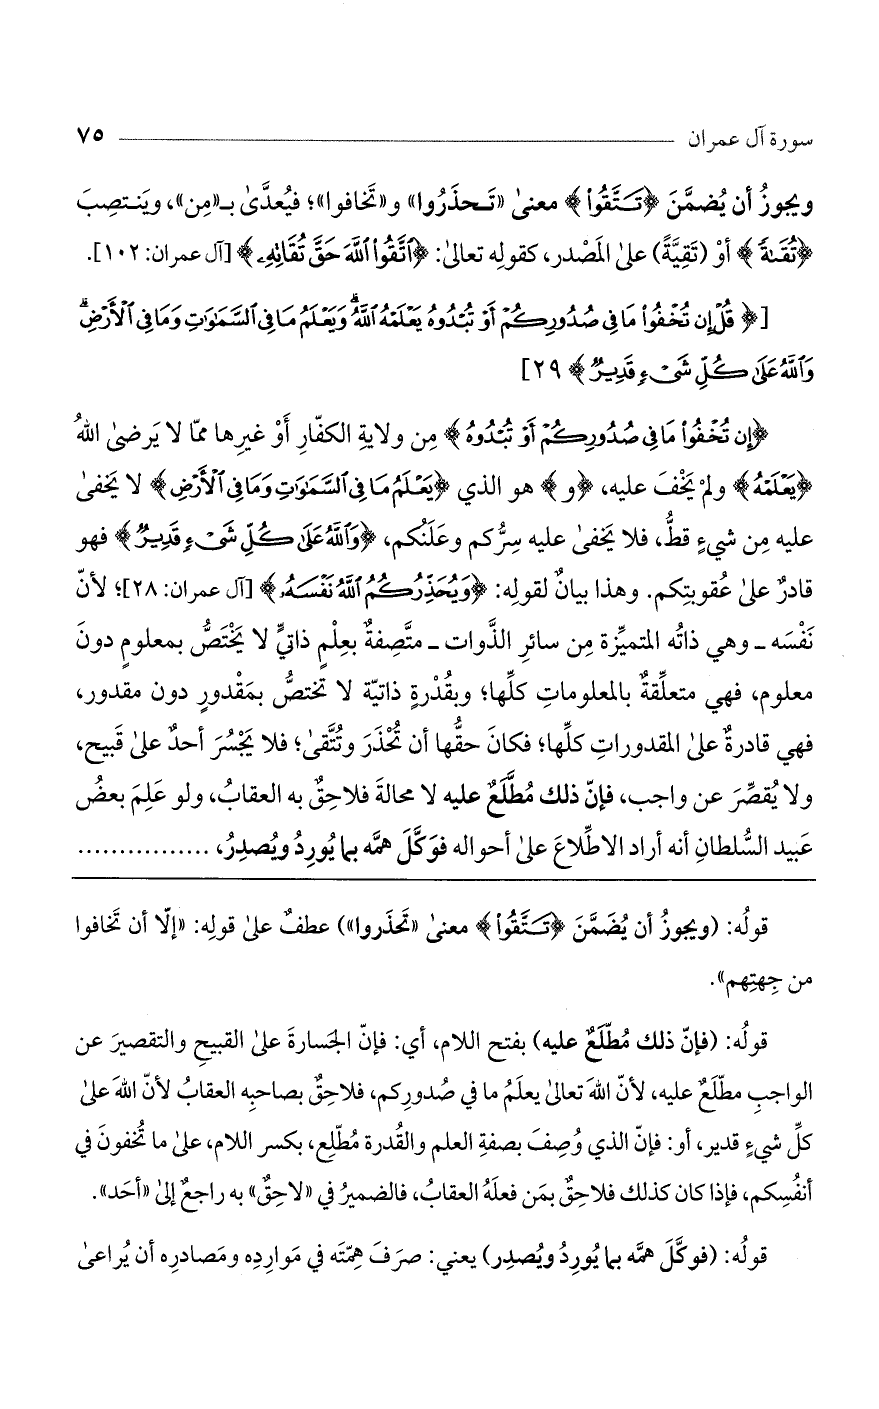 سورة آل عمران ٧٥
ويجوزُ أن يُضمَّنَ ﴿تَكَتَّقُواْ﴾ معنىٰ «تَحذَرُوا» و«تَخافوا»؛ فيُعدَّىٰ بـ«مِن»، ويَنتصِبَ
﴿تُقَىٰةً﴾ أوْ (تَقِيَّةً) علىٰ المَصْدر، كقولِه تعالىٰ: ﴿ٱتَّقُواْ ٱللَّهَ حَقَّ تُقَاتِهِۦ﴾ [آل عمران: ١٠٢].
[﴿قُلْ إِن تُخْفُواْ مَا فِى صُدُورِكُمْ أَوْ تُبْدُوهُ يَعْلَمْهُ ٱللَّهُ وَيَعْلَمُ مَا فِى ٱلسَّمَٰوَٰتِ وَمَا فِى ٱلْأَرْضِ
وَٱللَّهُ عَلَىٰ كُلِّ شَىْءٍ قَدِيرٌ﴾ ٢٩]
﴿إِن تُخْفُواْ مَا فِى صُدُورِكُمْ أَوْ تُبْدُوهُ﴾ مِن ولايةِ الكفّارِ أَوْ غيرِها ممّا لا يَرضىٰ اللهُ
﴿يَعْلَمْهُ﴾ ولمْ يَخْفَ عليه، ﴿و﴾ هو الذي ﴿يَعْلَمُ مَا فِى ٱلسَّمَٰوَٰتِ وَمَا فِى ٱلْأَرْضِ﴾ لا يَخفىٰ
عليه مِن شيءٍ قطُّ، فلا يَخفىٰ عليه سِرُّكم وعَلَنُكم، ﴿وَٱللَّهُ عَلَىٰ كُلِّ شَىْءٍ قَدِيرٌ﴾ فهو
قادرٌ علىٰ عُقوبتِكم. وهذا بيانٌ لقولِه: ﴿وَيُحَذِّرُكُمُ ٱللَّهُ نَفْسَهُۥ﴾ [آل عمران: ٢٨]؛ لأنّ
نَفْسَه ـ وهي ذاتُه المتميِّزة مِن سائرِ الذَّوات ـ متَّصِفةٌ بعِلْمٍ ذاتيٍّ لا يَخْتَصُّ بمعلومٍ دونَ
معلوم، فهي متعلِّقةٌ بالمعلوماتِ كلِّها؛ وبقُدْرةٍ ذاتيّة لا تختصُّ بمَقْدورٍ دون مقدور،
فهي قادرةٌ علىٰ المقدوراتِ كلِّها؛ فكانَ حقُّها أن تُحْذَرَ وتُتَّقىٰ؛ فلا يَجْسُرَ أحدٌ علىٰ قَبيح،
ولا يُقصِّرَ عن واجب، فإنّ ذلك مُطَّلَعٌ عليه لا محالةَ فلاحِقٌ به العقابُ، ولو عَلِمَ بعضُ
عَبيد السُّلطانِ أنه أراد الاطِّلاعَ علىٰ أحواله فوَكَّلَ همَّه بما يُورِدُ ويُصدِرُ، ................
قولُه: (ويجوزُ أن يُضَمَّنَ ﴿تَكَتَّقُواْ﴾ معنىٰ «تَحَذَروا») عطفٌ علىٰ قولِه: «إلّا أن تَخافوا
من جِهتِهم».
قولُه: (فإنّ ذلك مُطَّلَعٌ عليه) بفتح اللام، أي: فإنّ الجَسارةَ علىٰ القبيحِ والتقصيرَ عن
الواجبِ مطَّلَعٌ عليه، لأنّ اللهَ تعالىٰ يعلَمُ ما في صُدورِكم، فلاحِقٌ بصاحبِه العقابُ لأنّ اللهَ علىٰ
كلِّ شيءٍ قدير، أو: فإنّ الذي وُصِفَ بصفةِ العلم والقُدرة مُطَّلِع، بكسر اللام، علىٰ ما تُخفونَ في
أنفُسِكم، فإذا كان كذلك فلاحِقٌ بمَن فعلَهُ العقابُ، فالضميرُ في «لاحِقٌ» به راجعٌ إلىٰ «أحَد».
قولُه: (فوكَّلَ همَّه بما يُورِدُ ويُصدِر) يعني: صرَفَ هِمّتَه في مَوارِدِه ومَصادرِه أن يُراعىٰ